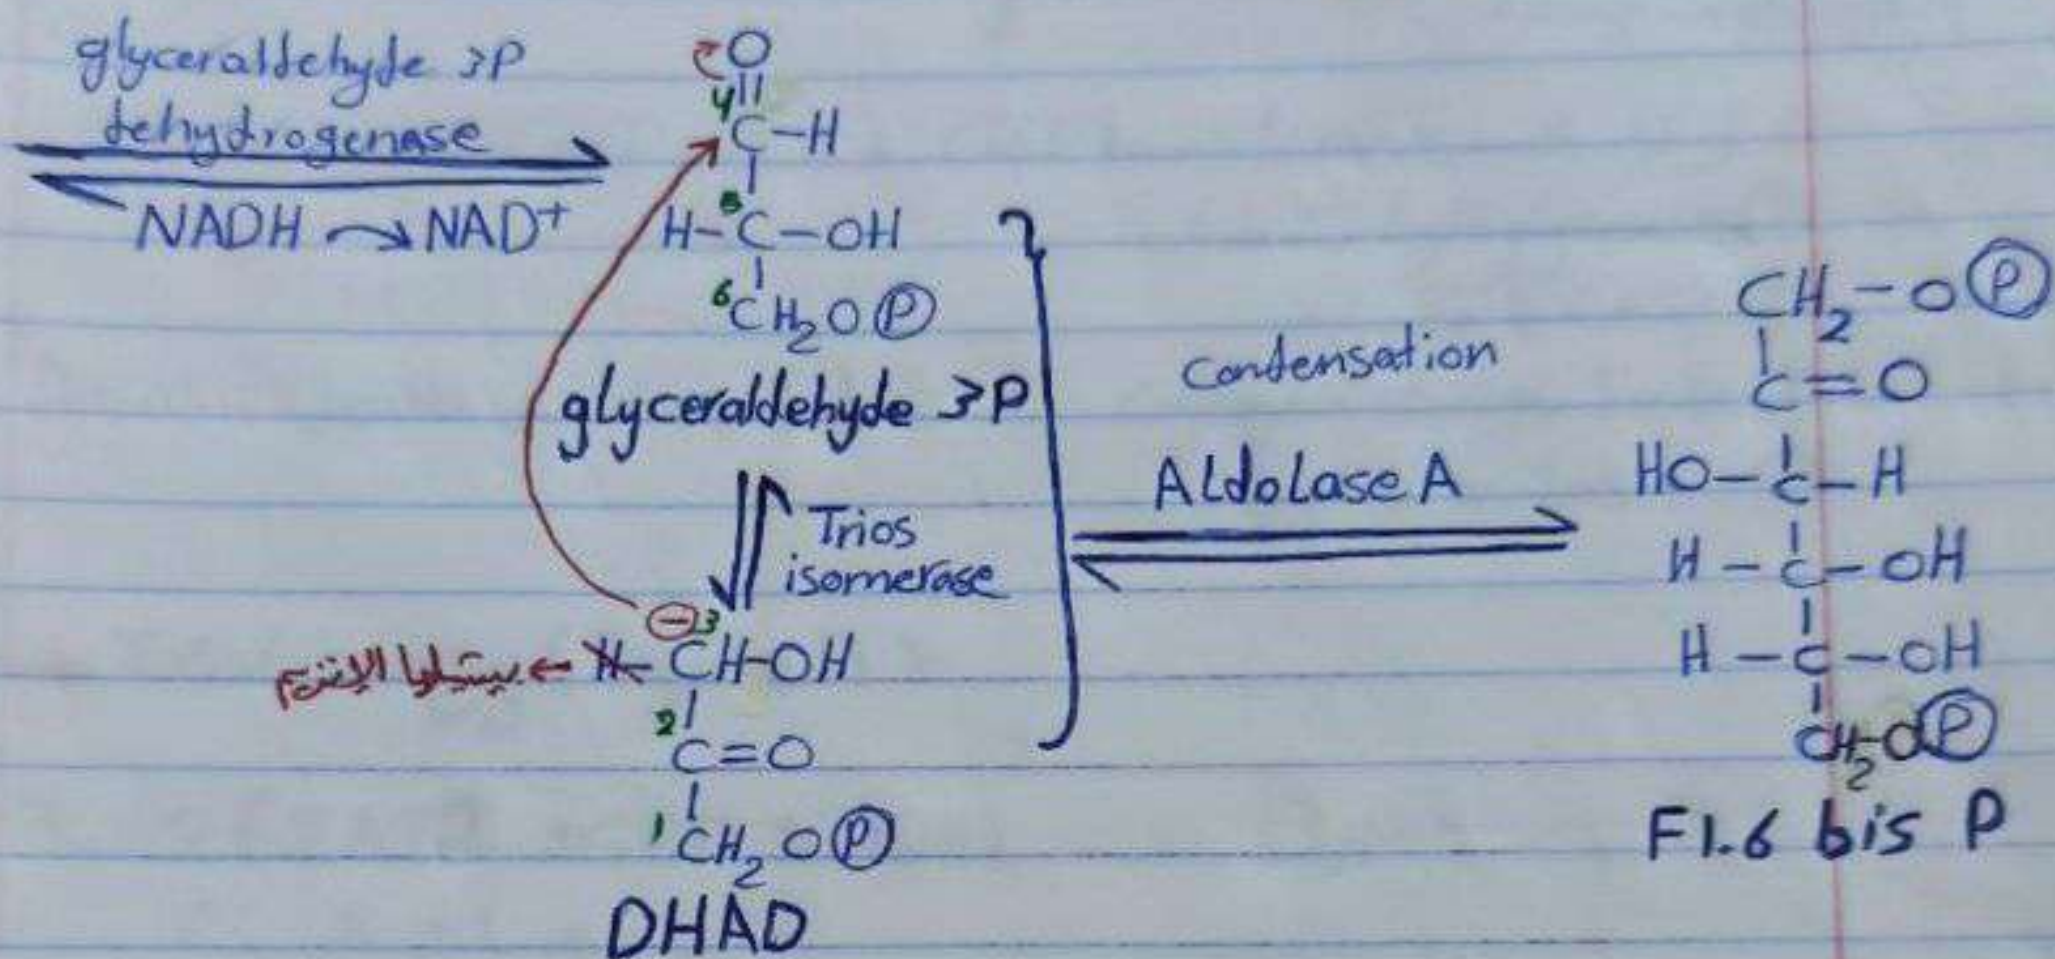 glyceraldehyde 3P
dehydrogenase
NADH → NAD+
O
4 ||
C-H
|
H-5C-OH
|
6CH2O(P)
glyceraldehyde 3P
Trios
isomerase
(-) 3
بيشيلها الإنزيم ← H-CH-OH
|
2C=O
|
1CH2O(P)
DHAD
Condensation
Aldolase A
CH2-O(P)
|
C=O
|
HO-C-H
|
H-C-OH
|
H-C-OH
|
CH2-O(P)
F1.6 bis P